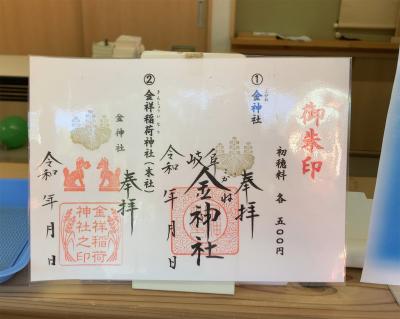 御朱印
初穂料 各 五〇〇円
① 金神社
こがね
奉拝
岐阜
金神社
こがね
令和 年 月 日
② 金祥稲荷神社（末社）
きんしょういなり
奉拝
金神社
金祥稲荷
神社之印
令和 年 月 日